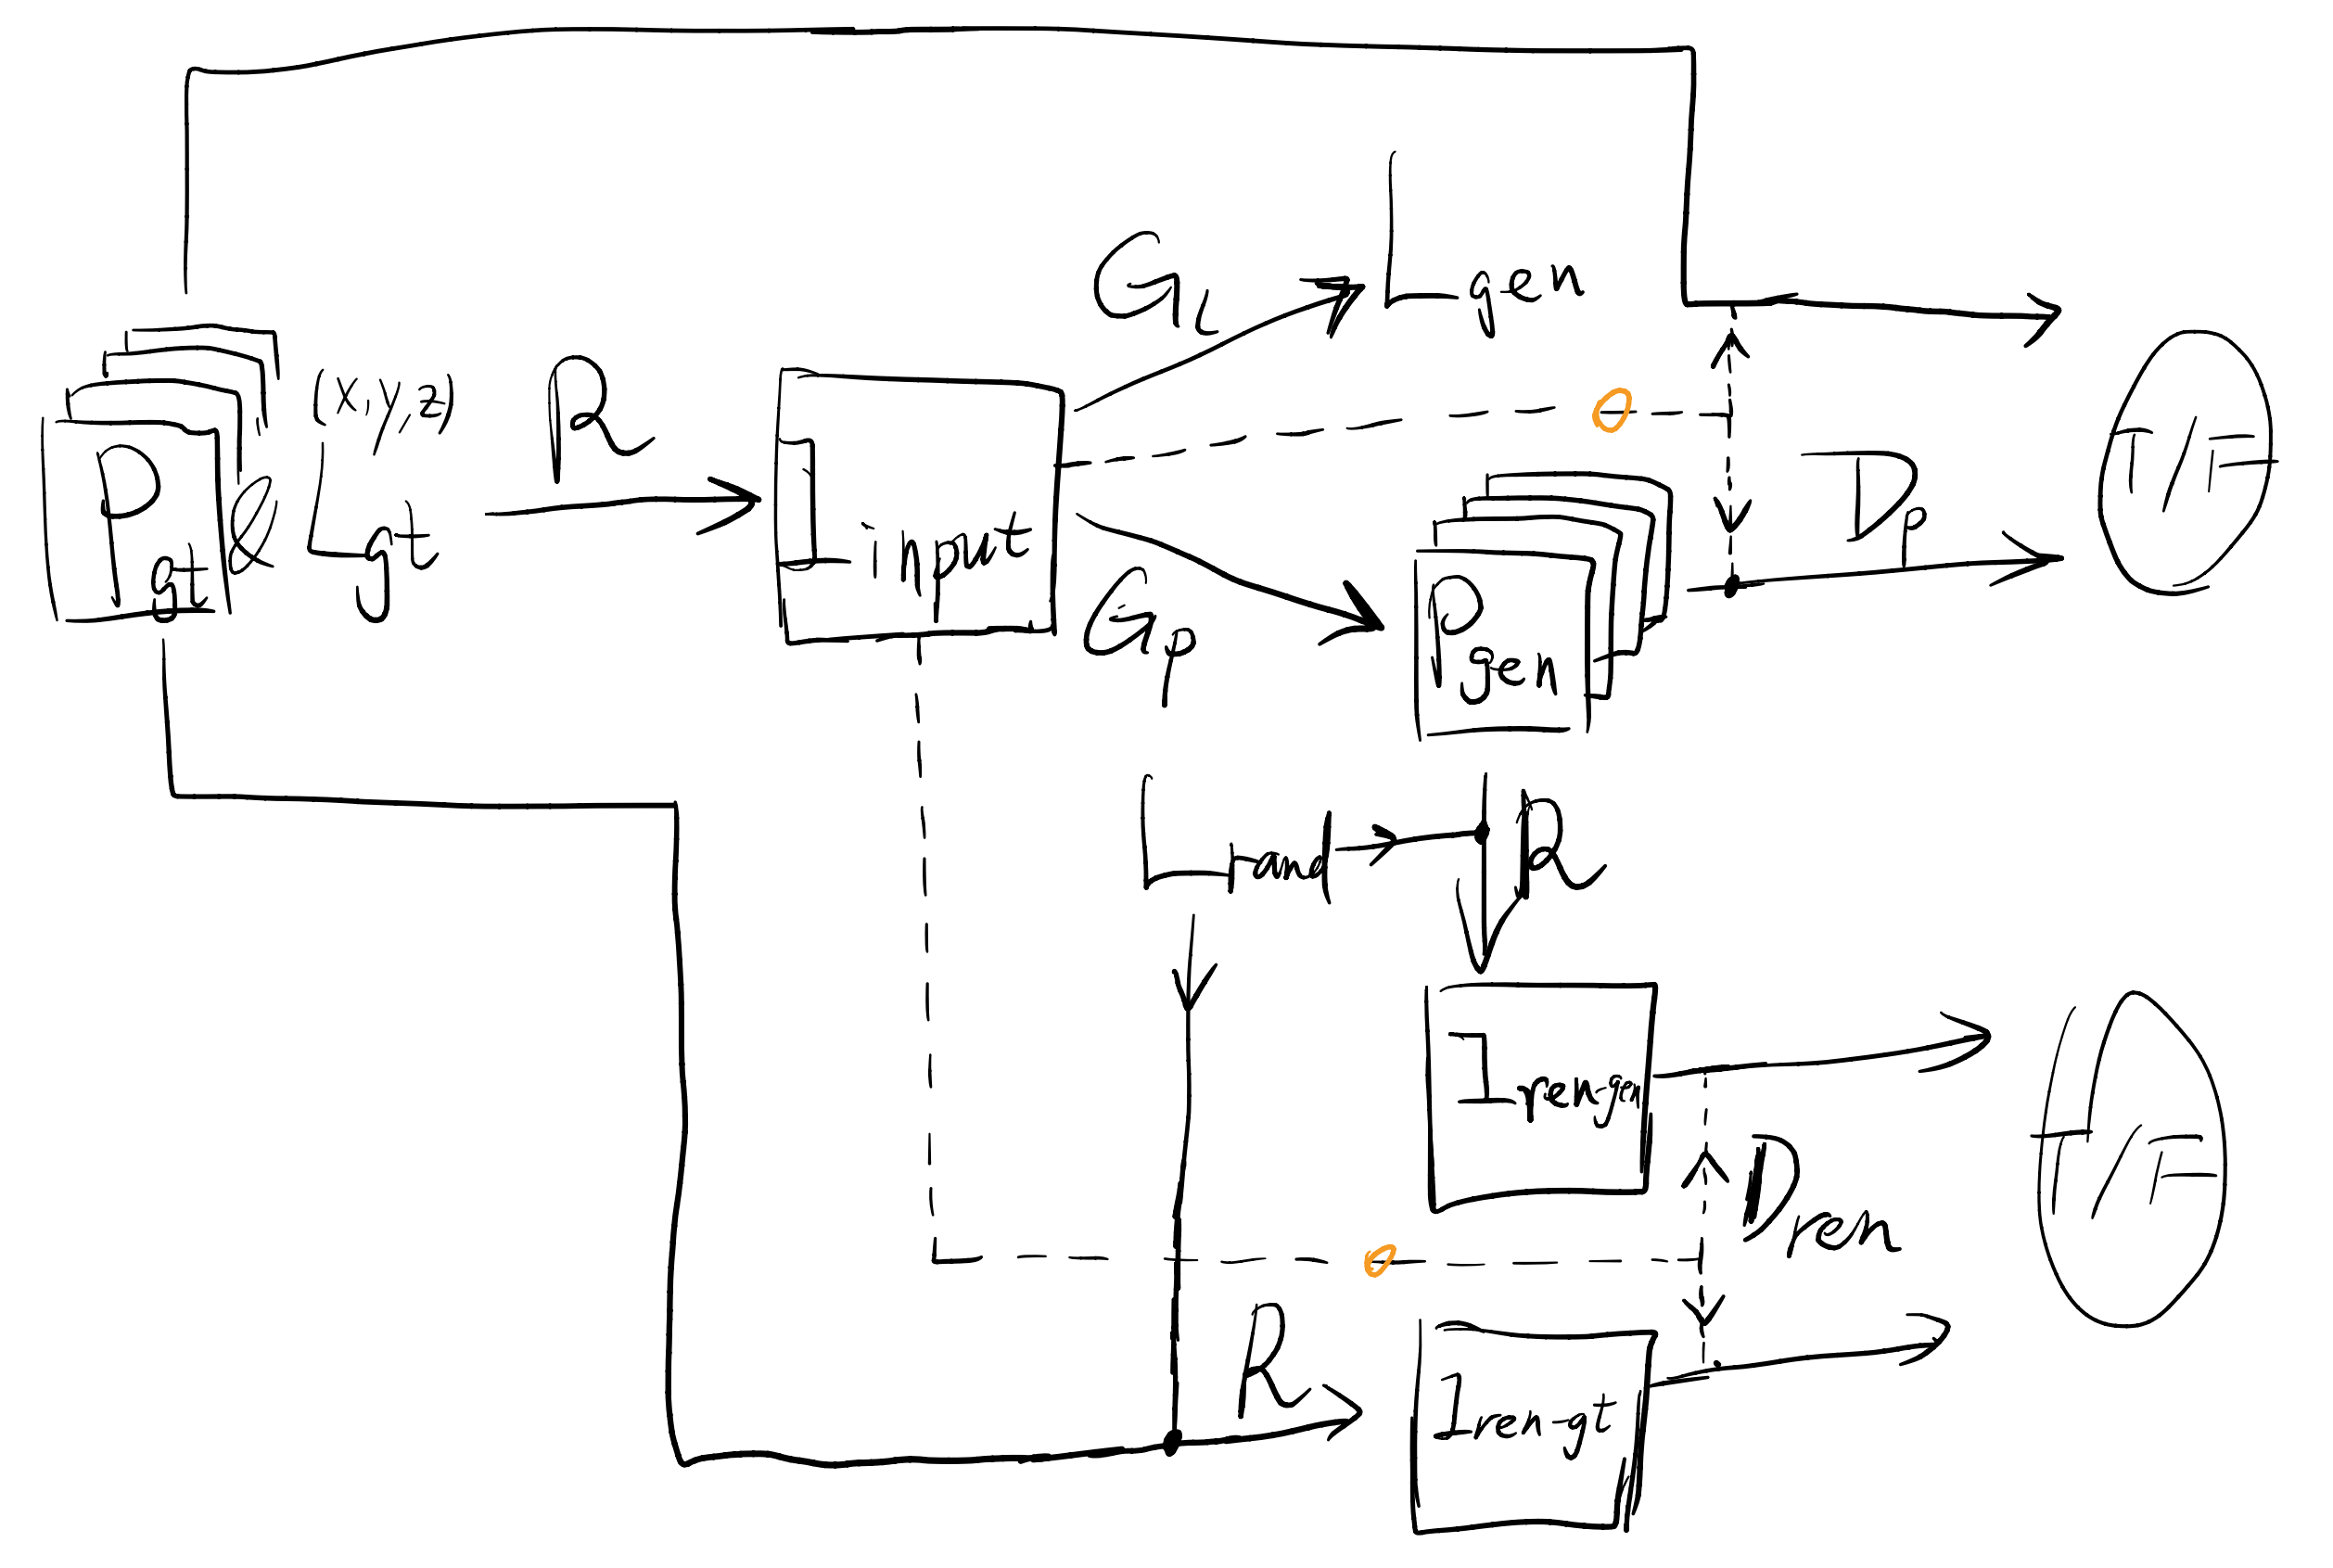 (x,y,z)
Pgt & Lgt
R
Iinput
GL
Lgen
Gp
Pgen
Dp
T/F
Lrand
R
Iren-gen
Dren
T/F
R
Iren-gt